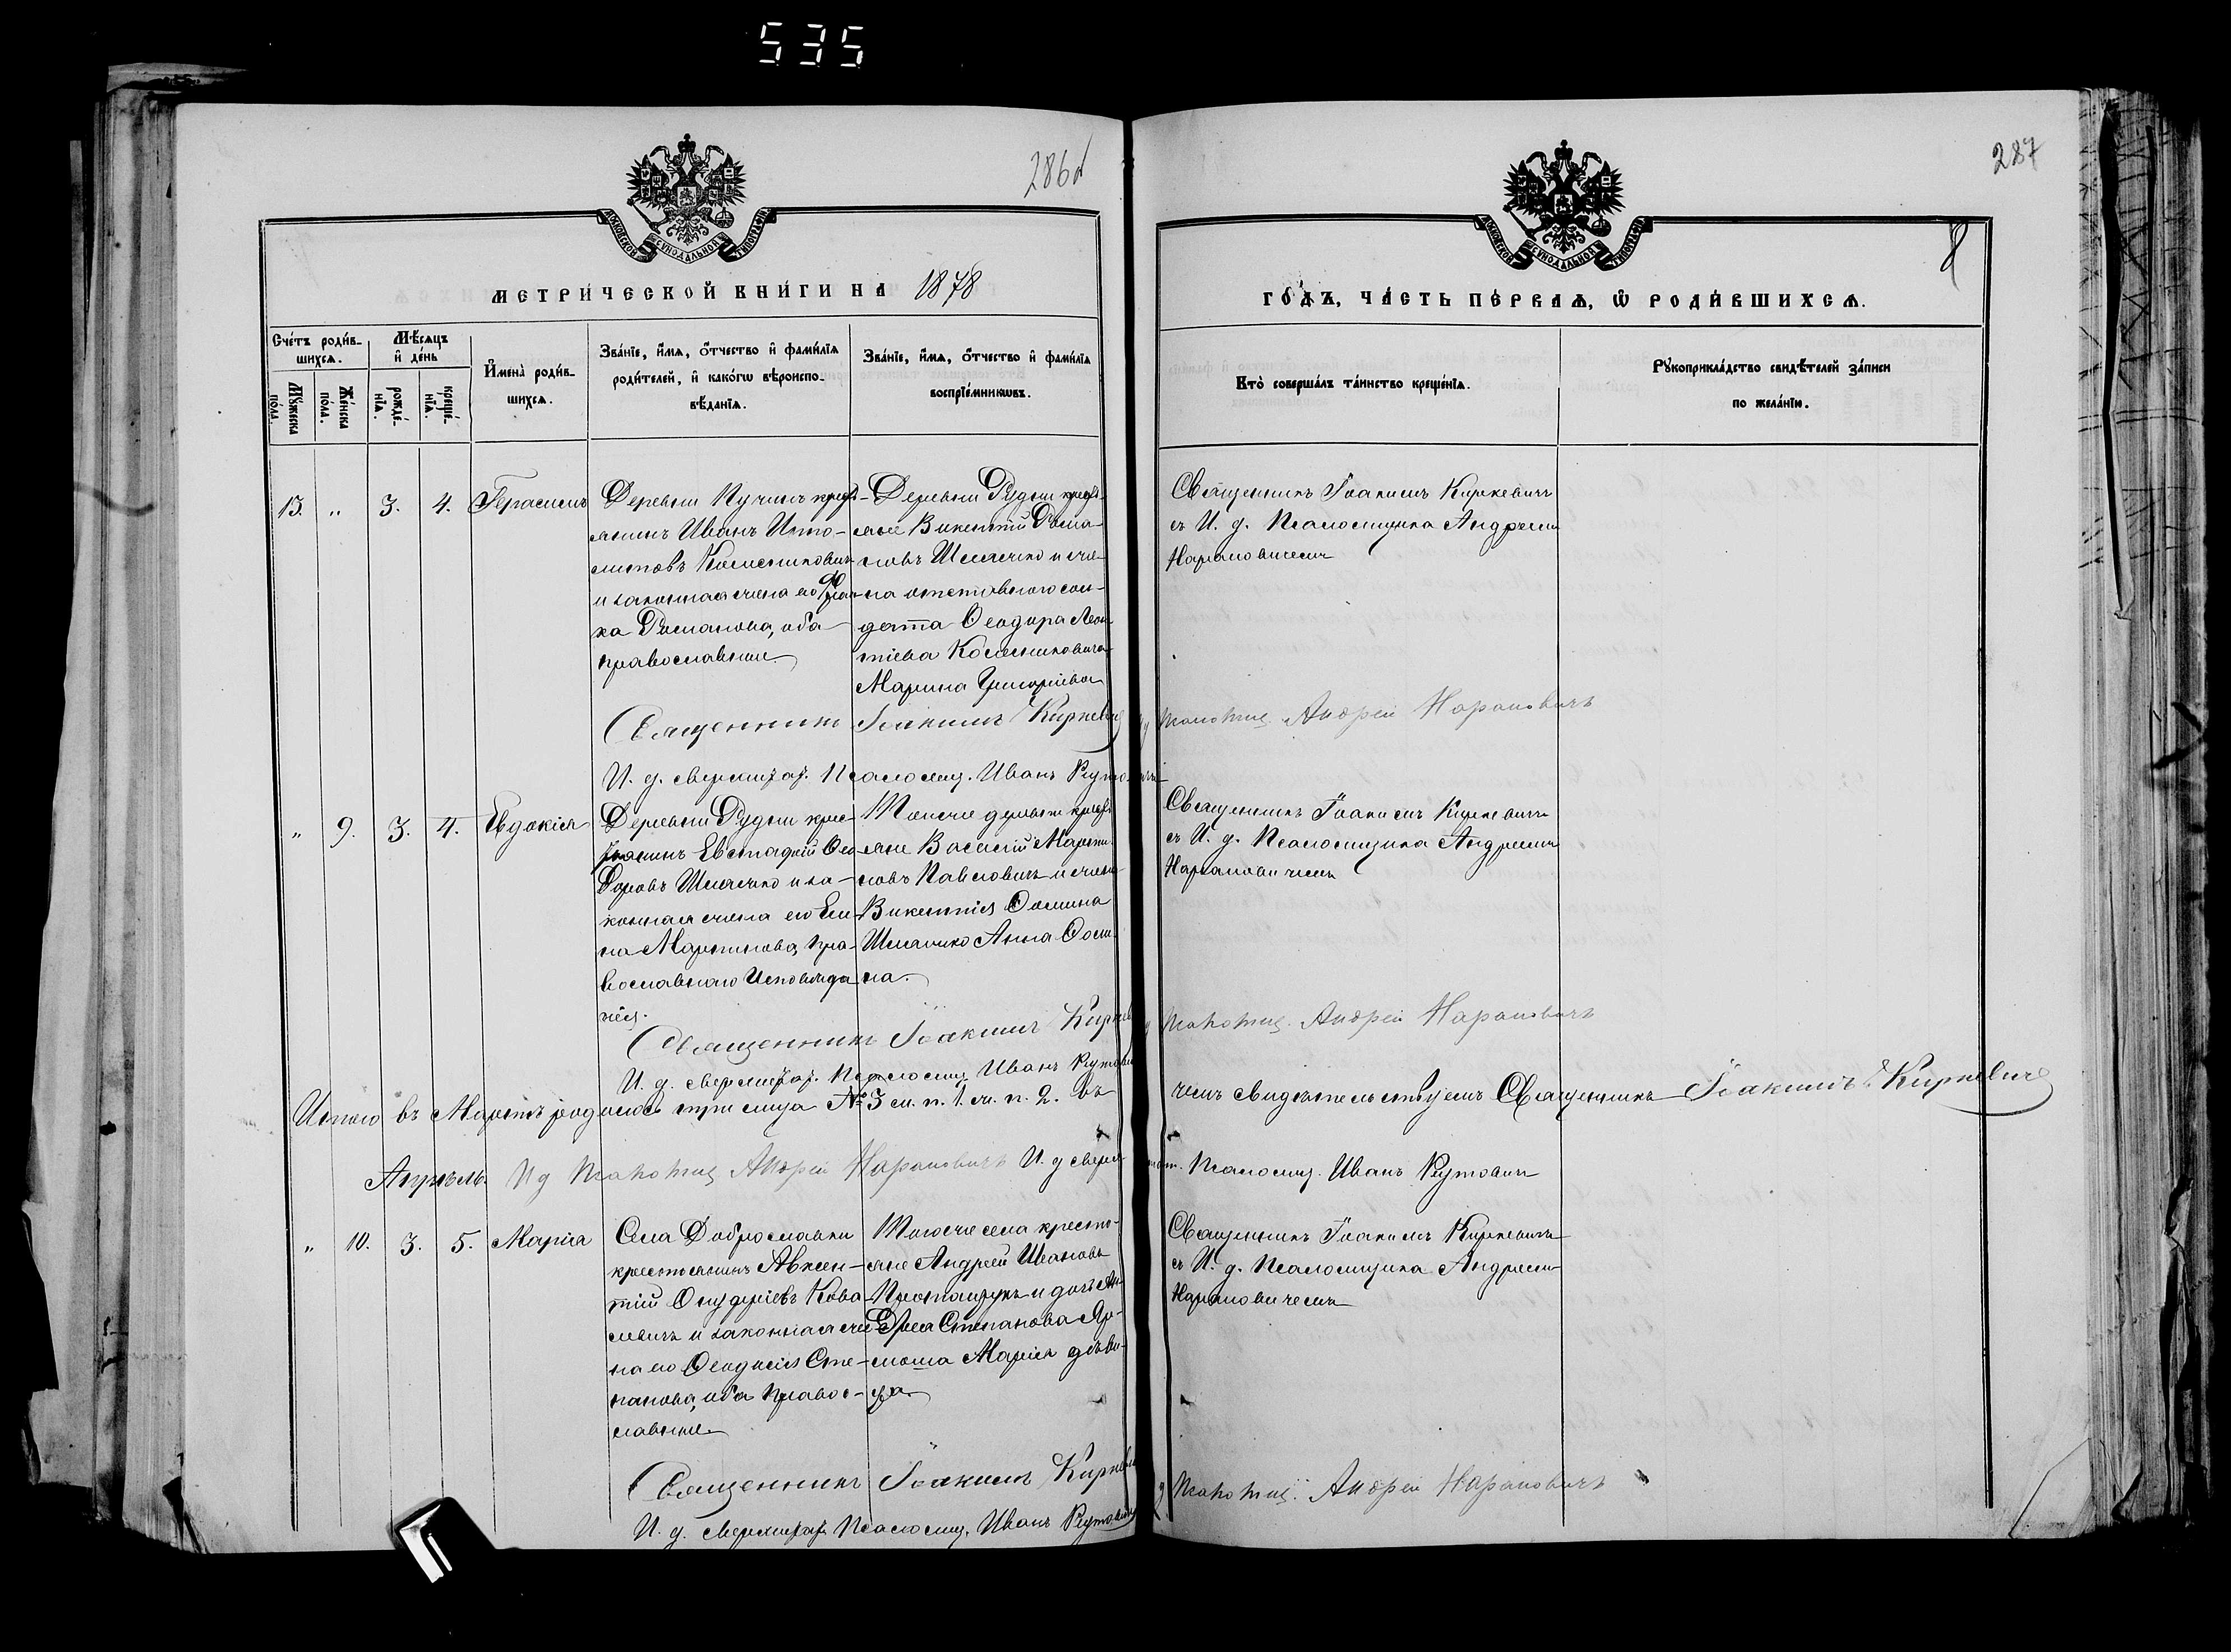 535
286
287
8
МОСКОВСКОЙ СѴНОДАЛЬНОЙ ТИПОГРАФІИ
МОСКОВСКОЙ СѴНОДАЛЬНОЙ ТИПОГРАФІИ
МЕТРИ́ЧЕСКОЙ КНИ́ГИ НА 1878
ГО́ДЪ, ЧА́СТЬ ПЕ́РВАѦ, Ѽ РОДИ́ВШИХСѦ.
Сче́тъ роди́в-
шихсѧ.
Мꙋ́жеска
по́ла.
Же́нска
по́ла.
Мѣ́сѧцъ
и҆ де́нь
рожде́-
нїѧ.
креще́-
нїѧ.
И҆мена̀ роди́в-
шихсѧ.
Зва́нїе, и҆́мѧ, ѻ҆́тчество и҆ фами́лїѧ
роди́телей, и҆ како́гѡ вѣроиспо-
вѣ́данїѧ.
Зва́нїе, и҆́мѧ, ѻ҆́тчество и҆ фами́лїѧ
воспрїе́мникѡвъ.
Кто̀ соверша́лъ та́инство креще́нїѧ.
Рꙋкоприкла́дство свидѣ́телей за́писи
по жела́нїю.
13. „ 3. 4. Герасимъ
Деревни Пучинъ крест-
янинъ Иванъ Иппо-
литовъ Колесниковичъ
и законная жена его
ка Романова, оба
православные.
Деревни Рудни крест-
яне Викентій Ѳоми-
новъ Шмачко и же-
на отставного сол-
дата Ѳеодора Леон-
тіева Колесниковича
Марина Григоріева
Священникъ Іоакимъ Киркевичъ
съ И. д. Псаломщика Андреемъ
Нарановичемъ
Священникъ Іоакимъ Киркевичъ
псаломщ. Андрей Нарановичъ
И. д. сверхштат. Псаломщ. Иванъ Рутовичъ
„ 9. 3. 4. Евдокія
Деревни Рудни крес-
тянинъ Евстафій Ѳео-
доровъ Шмачко и за-
конная жена его Еле-
на Мартинова, пра-
вославнаго исповѣда-
нія.
Тойже деревни крест-
яне Василій Марти-
новъ Павловичъ и жена
Викентія Ѳомина
Шмачко Анна Ѳоми-
на.
Священникъ Іоакимъ Киркевичъ
съ И. д. Псаломщика Андреемъ
Нарановичемъ
Священникъ Іоакимъ Киркевичъ
псаломщ. Андрей Нарановичъ
И. д. сверхштат. Псаломщ. Иванъ Рутовичъ
Итого въ Мартѣ родилось три лица № 3 м. п. 1. ж. п. 2. въ
чемъ свидѣтельствуемъ Священникъ Іоакимъ Киркевичъ
Ид Псаломщ Андрей Нарановичъ И. д сверхштат. Псаломщ. Иванъ Рутовичъ
Апрѣль.
„ 10. 3. 5. Марія
Села Доброславки
крестьянинъ Авксен-
тій Онуфріевъ Кова-
левичъ и законная же-
на его Ѳеодосія Сте-
панова, оба правос-
лавные.
Тогоже села кресть-
яне Андрей Ивановъ
и дочь Ан-
дрея Степанова Яр-
моша Марія дѣви-
ца
Священникъ Іоакимъ Киркевичъ
съ И. д. Псаломщика Андреемъ
Нарановичемъ
Священникъ Іоакимъ Киркевичъ
псаломщ. Андрей Нарановичъ
И. д. сверхштат. Псаломщ. Иванъ Рутовичъ